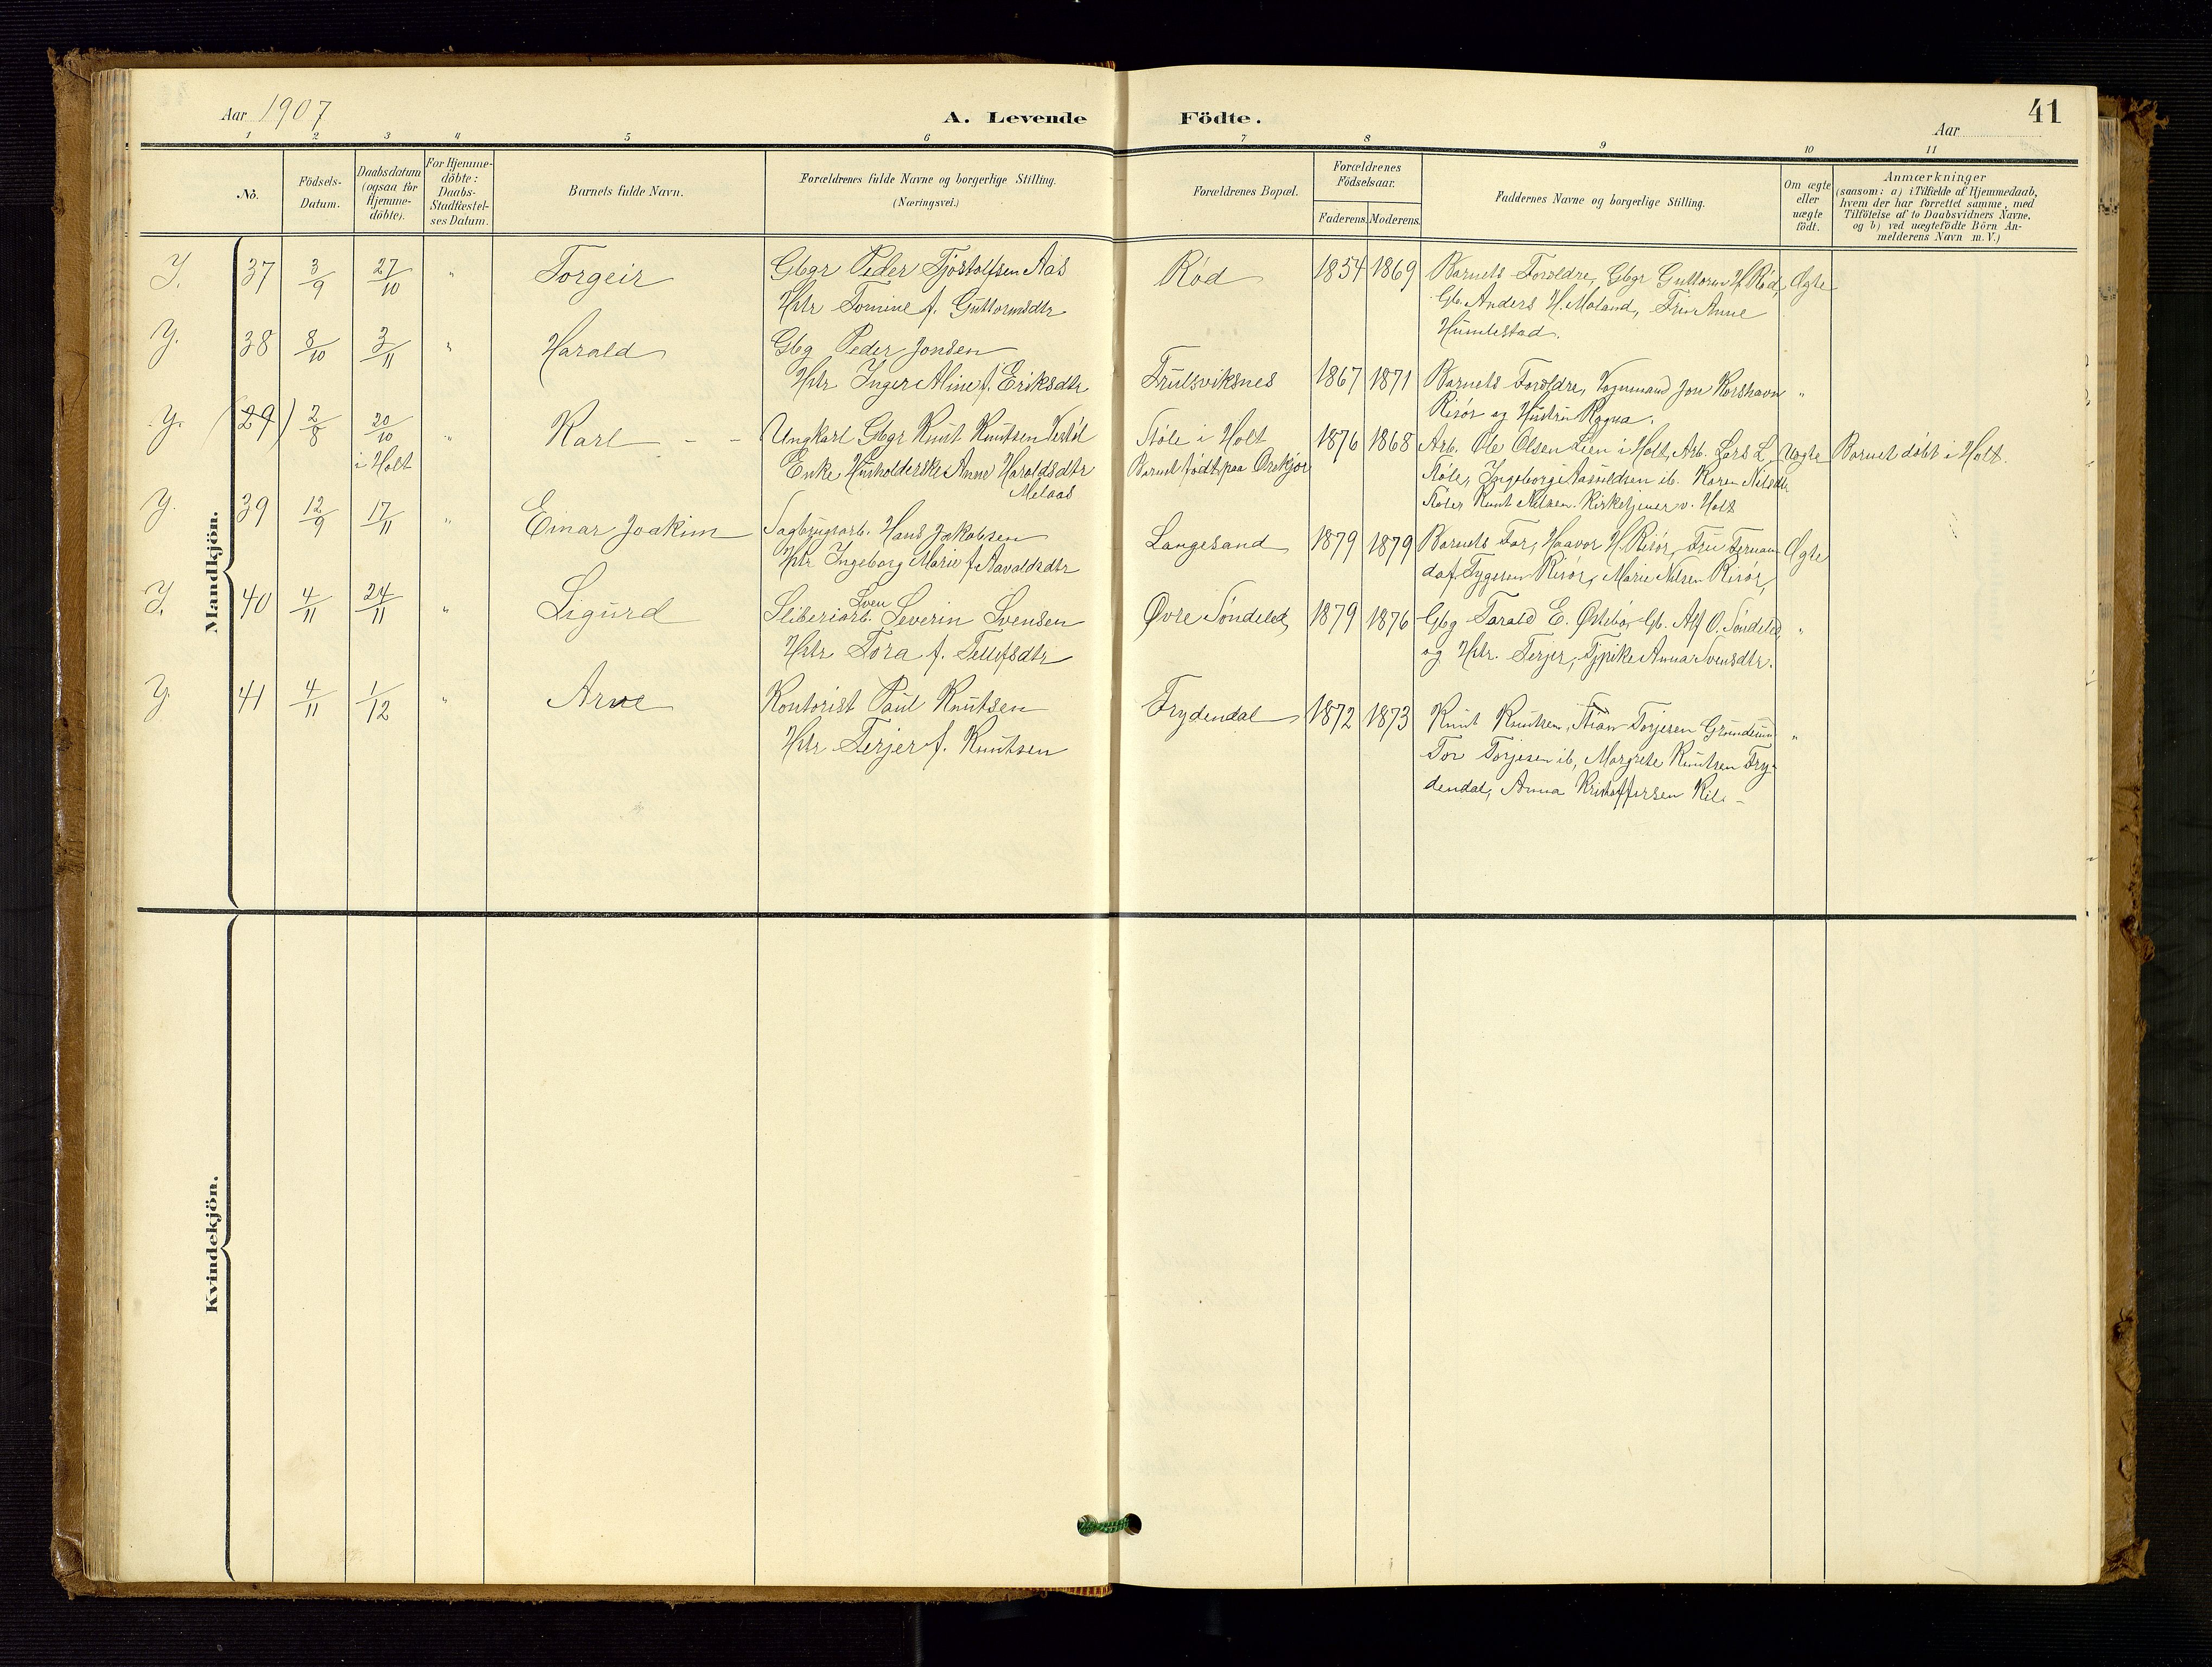 41
Aar 1907
A. Levende Födte.
Aar
1 2 3 4 5 6 7 8 9 10 11
No.
Födsels-
Datum.
Daabsdatum
(ogsaa for
Hjemme-
döbte).
For Hjemme-
döbte:
Daabs-
Stadfæstel-
ses Datum.
Barnets fulde Navn.
Forældrenes fulde Navne og borgerlige Stilling.
(Næringsvei.)
Forældrenes Bopæl.
Forældrenes
Födselsaar.
Faderens. Moderens.
Faddernes Navne og borgerlige Stilling.
Om ægte
eller
uægte
födt.
Anmærkninger
(saasom: a) i Tilfælde af Hjemmedaab,
hvem der har forrettet samme, med
Tilföielse af to Daabsvidners Navne,
og b) ved uægtefödte Börn An-
melderens Navn m.V.)
Mandkjön.
J. 37 3/9 27/10 " Torgeir Gbgr Peder Tjostolfsen Aas Rød 1854 1869 Barnets Forældre, Gbgr Guttorm H. Rød, Ægte
Hstr Tomine f. Guttormsdtr Gb. Anders H. Moland, Fru Anne
Humlestad.
J. 38 8/10 3/11 " Harald Gbg Peder Jonsen
Hstr Inger Aline f. Eriksdtr Trulsviksnes 1867 1871 Barnets Forældre, Vognmand Jon Korshavn "
Risør og Hustru Ragna.
J. (29) 2/8 20/10 " Karl - - Ungkarl Gbgr Knut Knutsen Vestøl Støle i Holt 1876 1868 Arb. Ole Olsen Lien i Holt, Arb. Lars L. Uægte Barnet døbt i Holt.
i Holt Enke, Husholderske Anne Haraldsdtr Barnet født paa Ørskjær Støle, Ingeborg Aasuldsen ib. Karen Nilsdtr
Melaas Støle, Knut Nilsen. Kirketjener v. Holt
J. 39 12/9 17/11 " Einar Joakim Sagbrugsarb. Hans Jakobsen Langesand 1879 1879 Barnets Far, Haavor H. Risør, Fru Fernan- Ægte
Hstr Ingeborg Marie f. Aavaldsdtr da f. Tygesen Risør, Marie Nilsen Risør,
J. 40 4/11 24/11 " Sigurd Sliberiarb. Sven Severin Svensen Øvre Søndeled, 1879 1876 Gbg Tarald E. Østebø, Gb. Alf O. Søndeled, "
Hstr Tora f. Tellefsdtr og Hstr. Terjer, Tjpike Anna Svensdtr.
J. 41 4/11 1/12 " Arne Kontorist Paul Knutsen Frydendal 1872 1873 Knut Knutsen, Stian Torjesen Grundesund "
Hstr Terjer f. Knutsen Tor Torjesen ib, Margrete Knutsen Fry-
dendal, Anna Kristoffersen Kil. -
Kvindekjön.